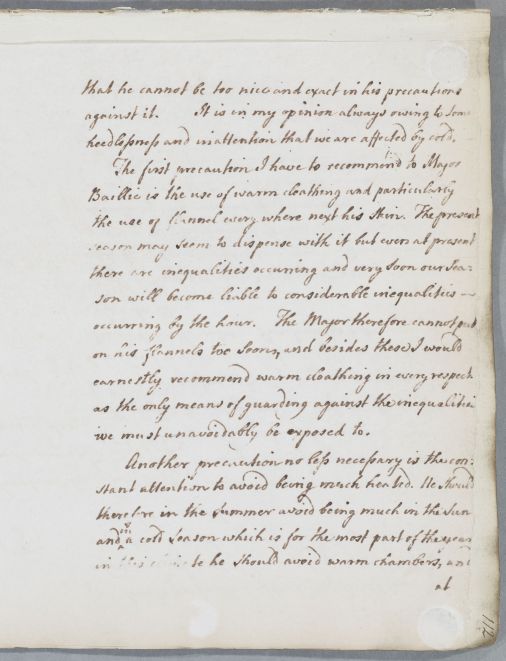 that he cannot be too nice and exact in his precautions
against it. It is in my opinion always owing to some
heedlessness and inattention that we are affected by cold.
The first precaution I have to recommend to Major
Baillie is the use of warm cloathing and particularly
the use of flannel every where next his Skin. The present
season may seem to dispense with it but even at present
there are inequalities occurring and very soon our Sea-
son will become liable to considerable inequalities
occurring by the hour. The Major therefore cannot put
on his flannels too Soon, and besides these I would
earnestly recommend warm cloathing in every respect
as the only means of guarding against the inequalities
we must unavoidably be exposed to.
Another precaution no less necessary is the con-
stant attention to avoid being much heated. He should
therefore in the Summer avoid being much in the Sun
and in a cold Season which is for the most part of the year
in this he should avoid warm chambers, and
at
112